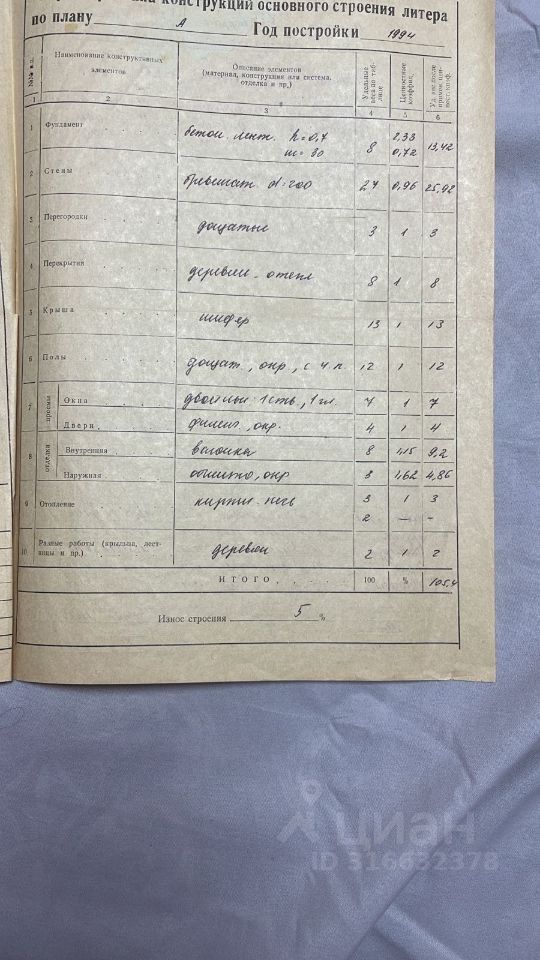 конструкций основного строения литера
по плану А Год постройки 1994
№№ п.п. Наименование конструктивных элементов Описание элементов (материал, конструкция или система, отделка и пр.) Удельные веса по таблице Ценностные коэффиц. Уд. вес после
1 2 3 4 5 6
1 Фундамент бетон. лент. h=0,7 2,33
m=30 8 0,72 13,42
2 Стены бревенчат d=200 27 0,96 25,92
3 Перегородки дощатые 3 1 3
4 Перекрытия деревян. отепл 8 1 8
5 Крыша шифер 13 1 13
6 Полы дощат., окр, с ч п. 12 1 12
7 проемы Окна двойные 1 ств, 1 гл. 7 1 7
Двери филен., окр. 4 1 4
8 отделка Внутренняя вагонка 8 1,15 9,2
Наружная обшито, окр 3 1,62 4,86
9 Отопление кирпич. печь 3 1 3
2 — -
10 Разные работы (крыльца, лест-
ницы и пр.) деревян 2 1 2
ИТОГО, . . . 100 % 105,4
Износ строения 5 %
циан
ID 316632378